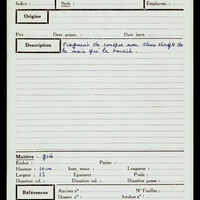 Indice : Style : Emplacem. :
Origine
Prix Date acquis. : Date insc. :
Description Fragment de conque avec deux doigts de
la main qui la tenait.
Matière : grès
Enduit : Patine :
Hauteur : 10 cm haut. tenon : Longueur :
Largeur : 13 Epaisseur : Poids :
Diamètre col. : Diamètre panse :
Références Anciens nos : N° Fouilles :
Dossier : Analyse n° :